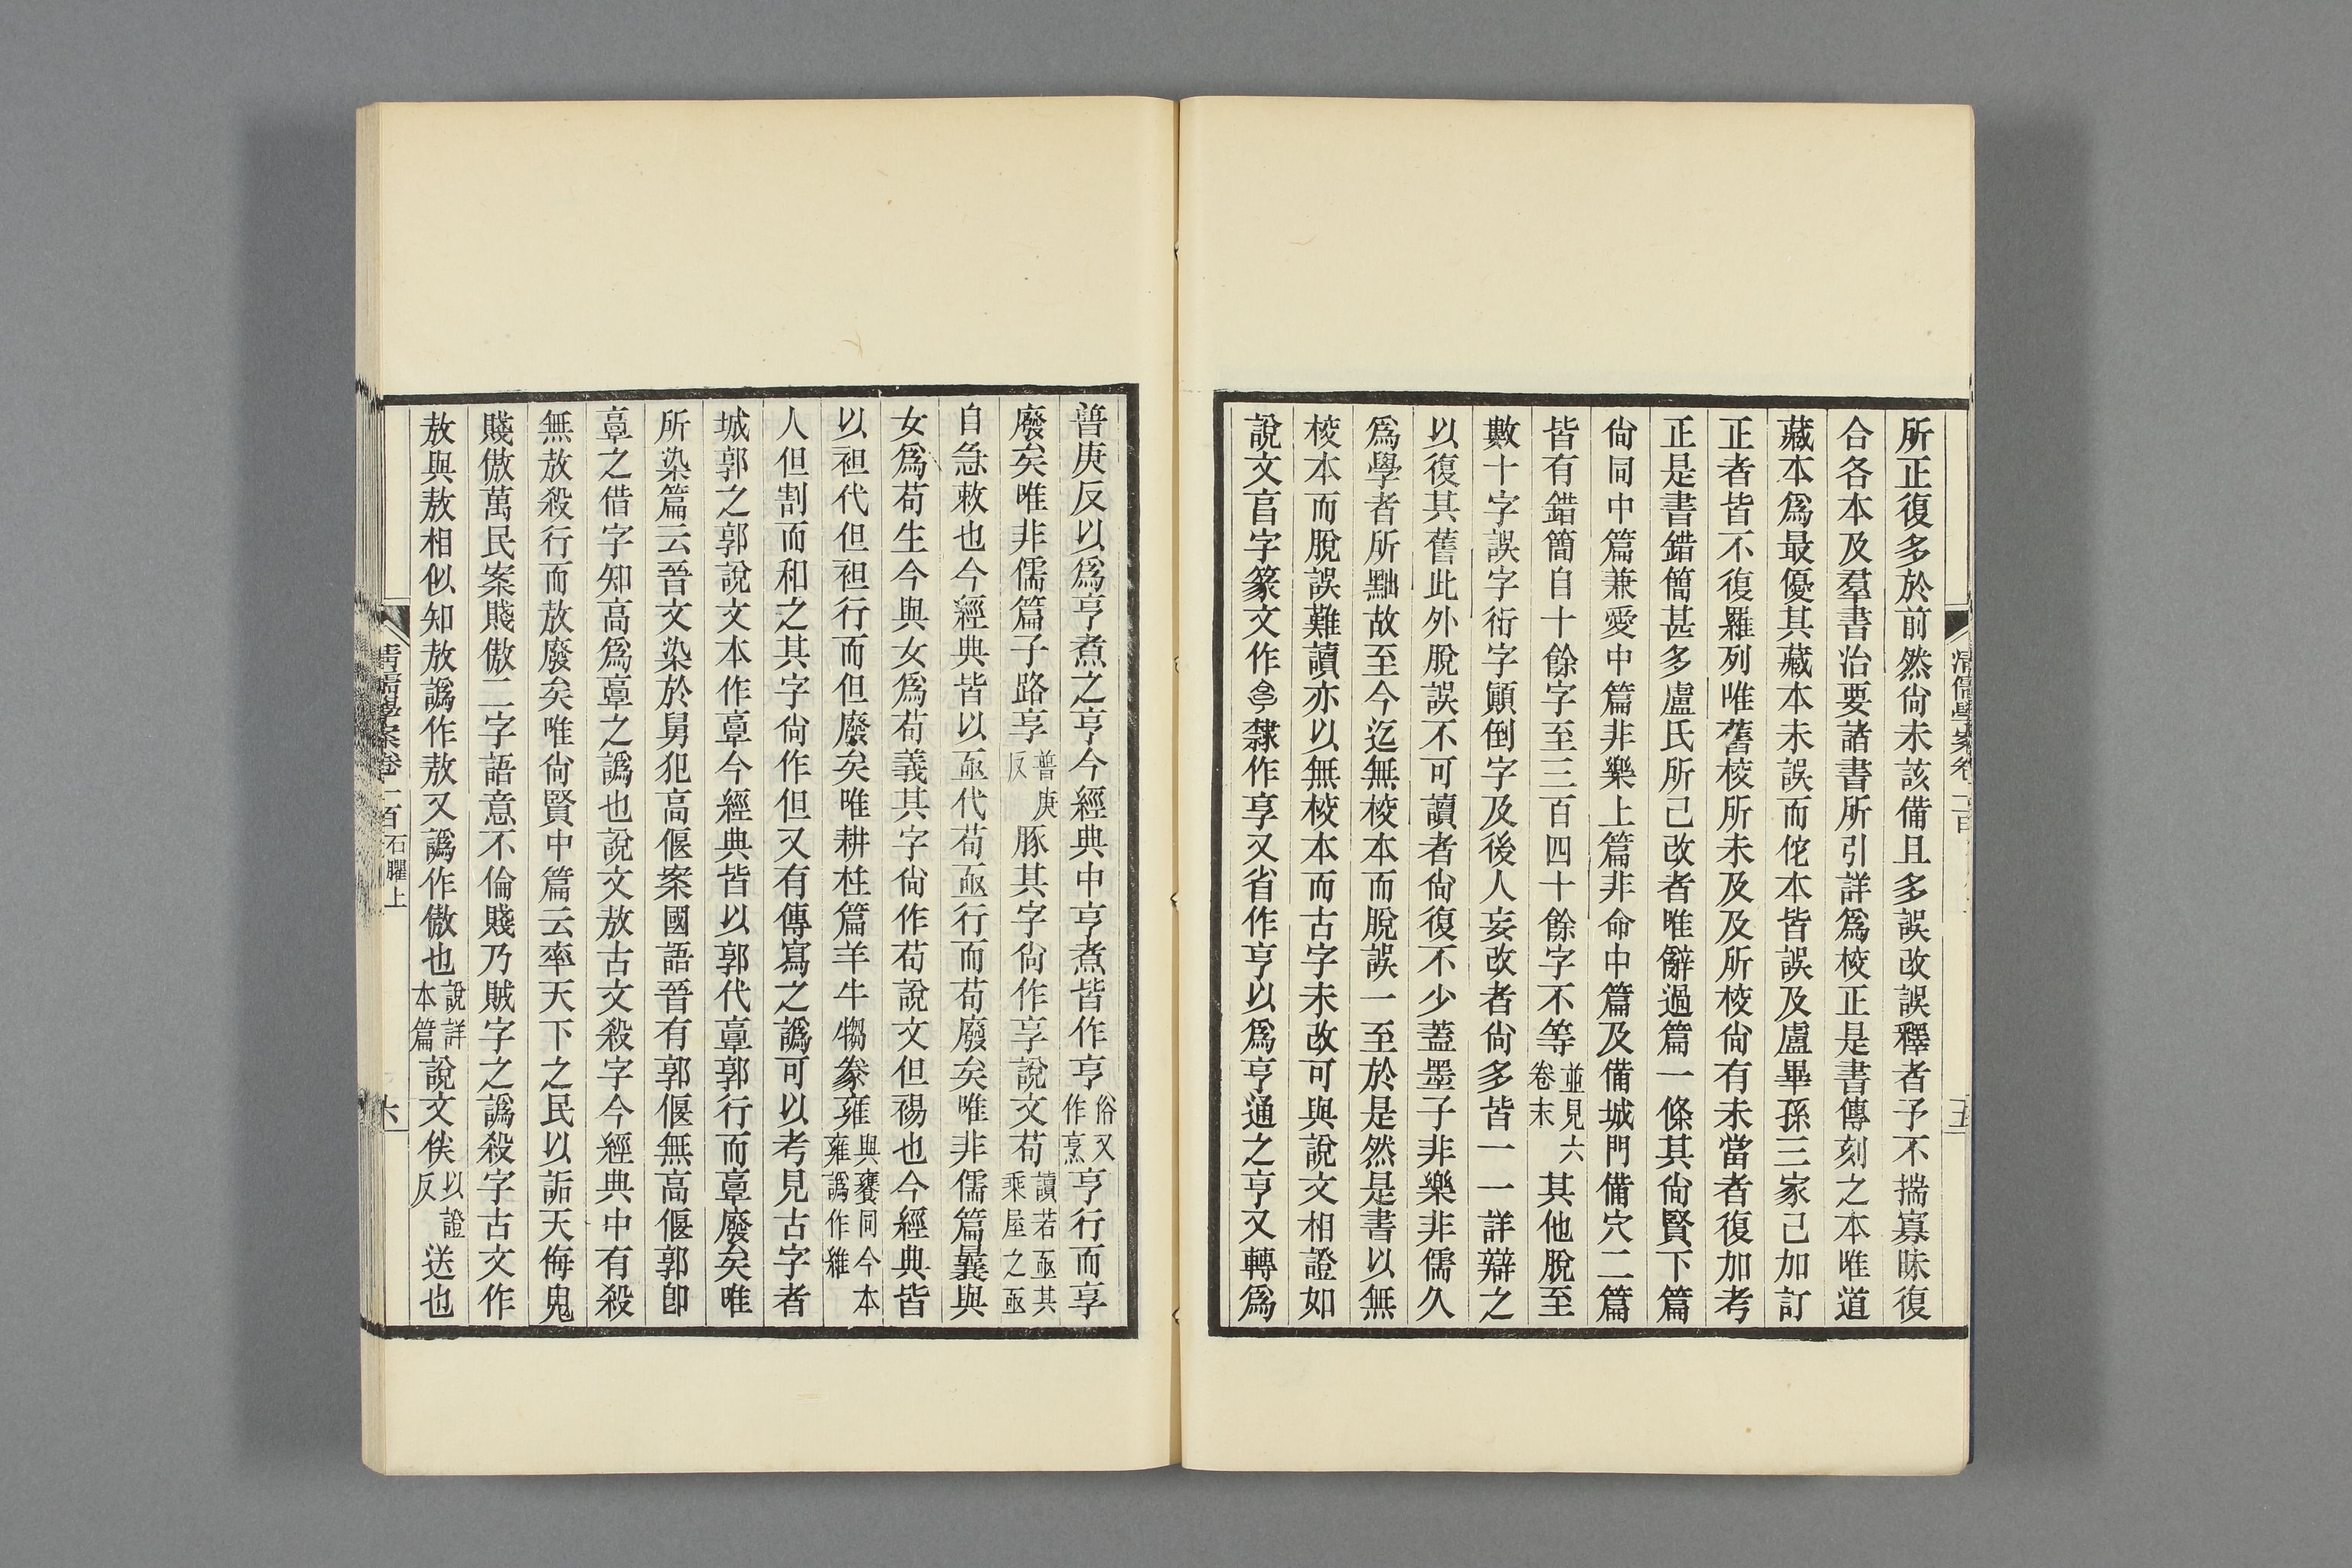 所正復多於前然尙未該備且多誤改誤釋者予不揣寡昧復
合各本及羣書治要諸書所引詳爲校正是書傳刻之本唯道
藏本爲最優其藏本未誤而佗本皆誤及盧畢孫三家已加訂
正者皆不復羅列唯舊校所未及及所校尙有未當者復加考
正是書錯簡甚多盧氏所已改者唯辭過篇一條其尙賢下篇
尙同中篇兼愛中篇非樂上篇非命中篇及備城門備穴二篇
皆有錯簡自十餘字至三百四十餘字不等並見六卷末其他脫至
數十字誤字衍字顚倒字及後人妄改者尙多皆一一詳辯之
以復其舊此外脫誤不可讀者尙復不少蓋墨子非樂非儒久
爲學者所黜故至今迄無校本而脫誤一至於是然是書以無
校本而脫誤難讀亦以無校本而古字未改可與說文相證如
說文亯字篆文作𠅠隸作享又省作亨以爲亨通之亨又轉爲
普庚反以爲亨煮之亨今經典中亨煮皆作亨俗又作烹亨行而享
廢矣唯非儒篇子路享普庚反豚其字尙作享說文苟讀若亟其乘屋之亟
自急敕也今經典皆以亟代苟亟行而苟廢矣唯非儒篇曩與
女爲苟生今與女爲苟義其字尙作苟說文但裼也今經典皆
以袒代但袒行而但廢矣唯耕柱篇羊牛犓豢雍與饔同今本雍譌作維
人但割而和之其字尙作但又有傳寫之譌可以考見古字者
城郭之郭說文本作𩫏今經典皆以郭代𩫏郭行而𩫏廢矣唯
所染篇云晉文染於舅犯高偃案國語晉有郭偃無高偃郭卽
𩫏之借字知高爲𩫏之譌也說文敖古文殺字今經典中有殺
無敖殺行而敖廢矣唯尙賢中篇云率天下之民以詬天侮鬼
賤傲萬民案賤傲二字語意不倫賤乃賊字之譌殺字古文作
敖與敖相似知敖譌作敖又譌作傲也說詳本篇說文佚以證反送也
清儒學案卷二百
五
清儒學案卷二百
石臞上
六